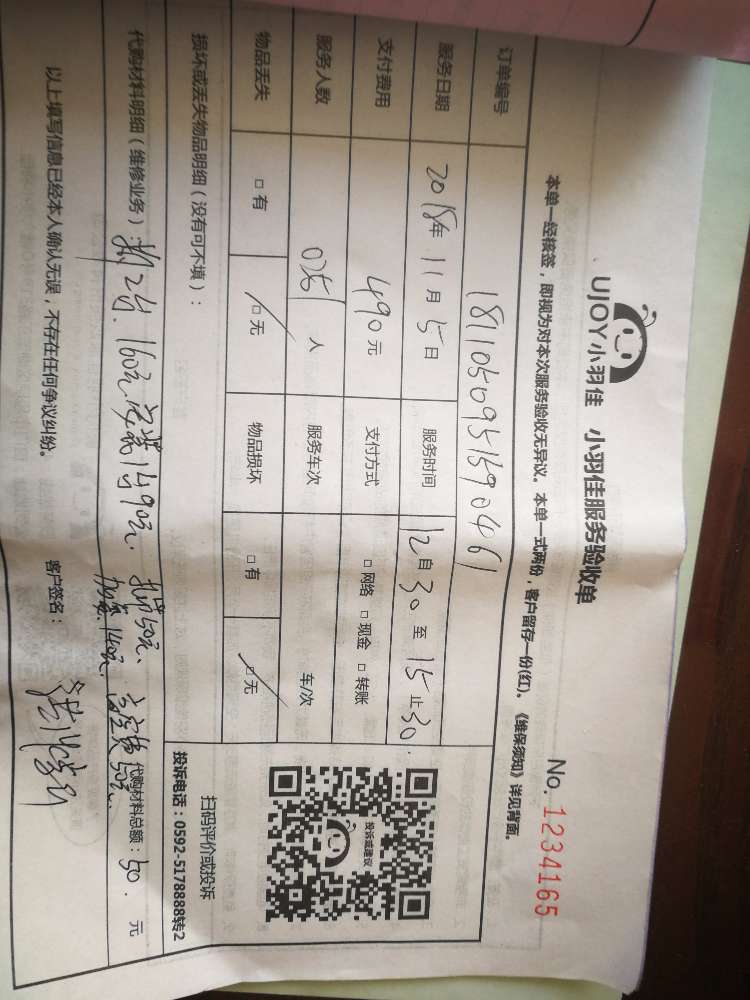 UJOY小羽佳 小羽佳服务验收单
No. 1234165
本单一经核签，即视为对本次服务验收无异议。本单一式两份，客户留存一份(红)。《维保须知》详见背面。
订单编号 1811050951690461
服务日期 2018年 11月 5日 服务时间 12自30至15止30
支付费用 490元 支付方式 □网络 □现金 □转账
服务人数 人 服务车次 车/次
物品丢失 □有 □无 物品损坏 □有 □无
损坏或丢失物品明细（没有可不填）：
扫码评价或投诉
投诉电话：0592-5178888转2
投诉或建议
代购材料明细（维修业务）： 2台. 160元 1台90元. 50元.
加 140元. 高空费50元.
代购材料总额：50. 元
以上填写信息已经本人确认无误，不存在任何争议纠纷。 客户签名：